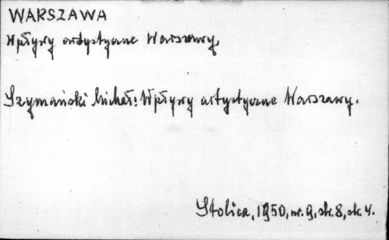 WARSZAWA
Wpływy artystyczne Warszawy.
Szymański Michał: Wpływy artystyczne Warszawy.
Stolica, 1950, nr. 9, str. 8, sk. 4.